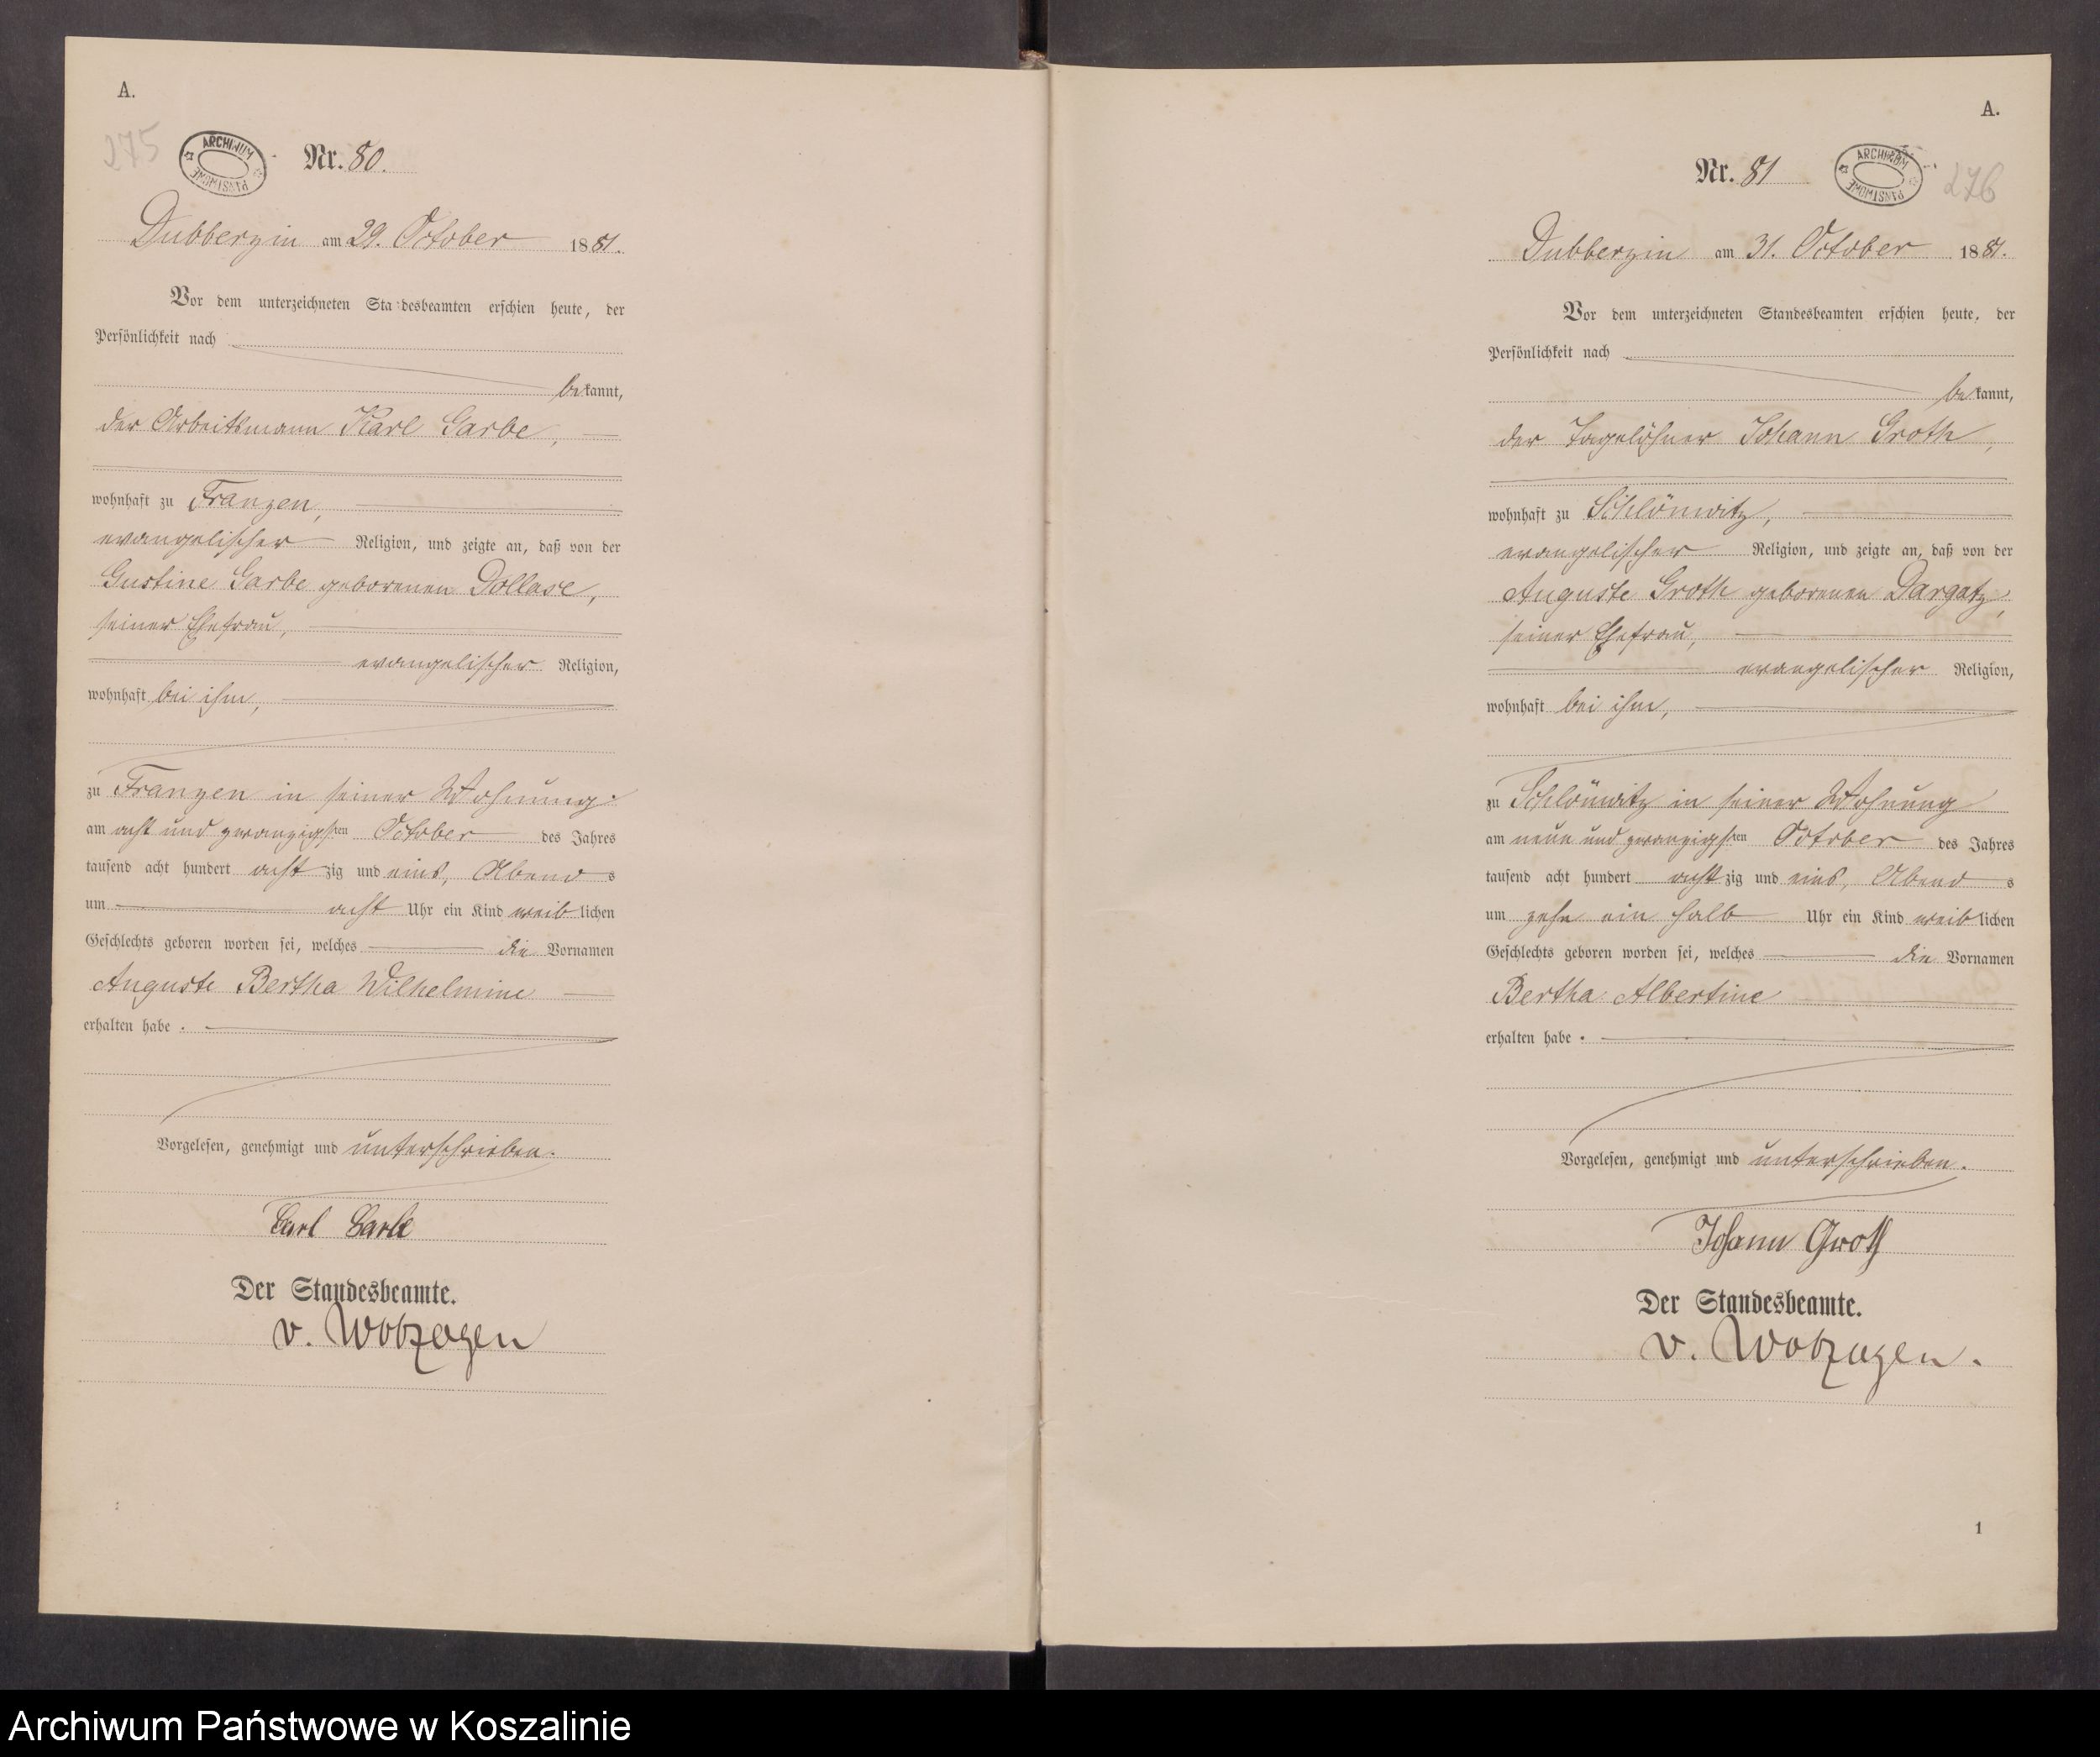 A.
275
ARCHIWUM PAŃSTWOWE
Nr. 80.
Dubberzin am 29. October 1881.
Vor dem unterzeichneten Standesbeamten erschien heute, der
Persönlichkeit nach
bekannt,
der Arbeitsmann Karl Garbe,
wohnhaft zu Franzen,
evangelischer Religion, und zeigte an, daß von der
Gustine Garbe geborenen Dollase,
seiner Ehefrau,
evangelischer Religion,
wohnhaft bei ihm,
zu Franzen in seiner Wohnung
am acht und zwanzigsten October des Jahres
tausend acht hundert achtzig und eins, Abends
um acht Uhr ein Kind weiblichen
Geschlechts geboren worden sei, welches die Vornamen
Auguste Bertha Wilhelmine
erhalten habe.
Vorgelesen, genehmigt und unterschrieben.
Carl Garbe
Der Standesbeamte.
v. Wobzogen
A.
Nr. 81
ARCHIWUM PAŃSTWOWE
276
Dubberzin am 31. October 1881.
Vor dem unterzeichneten Standesbeamten erschien heute, der
Persönlichkeit nach
bekannt,
der Tagelöhner Johann Groth,
wohnhaft zu Schlönwitz,
evangelischer Religion, und zeigte an, daß von der
Auguste Groth geborenen Dargatz,
seiner Ehefrau,
evangelischer Religion,
wohnhaft bei ihm,
zu Schlönwitz in seiner Wohnung
am neun und zwanzigsten October des Jahres
tausend acht hundert achtzig und eins, Abends
um zehn ein halb Uhr ein Kind weiblichen
Geschlechts geboren worden sei, welches die Vornamen
Bertha Albertine
erhalten habe.
Vorgelesen, genehmigt und unterschrieben.
Johann Groth
Der Standesbeamte.
v. Wobzogen.
1
Archiwum Państwowe w Koszalinie